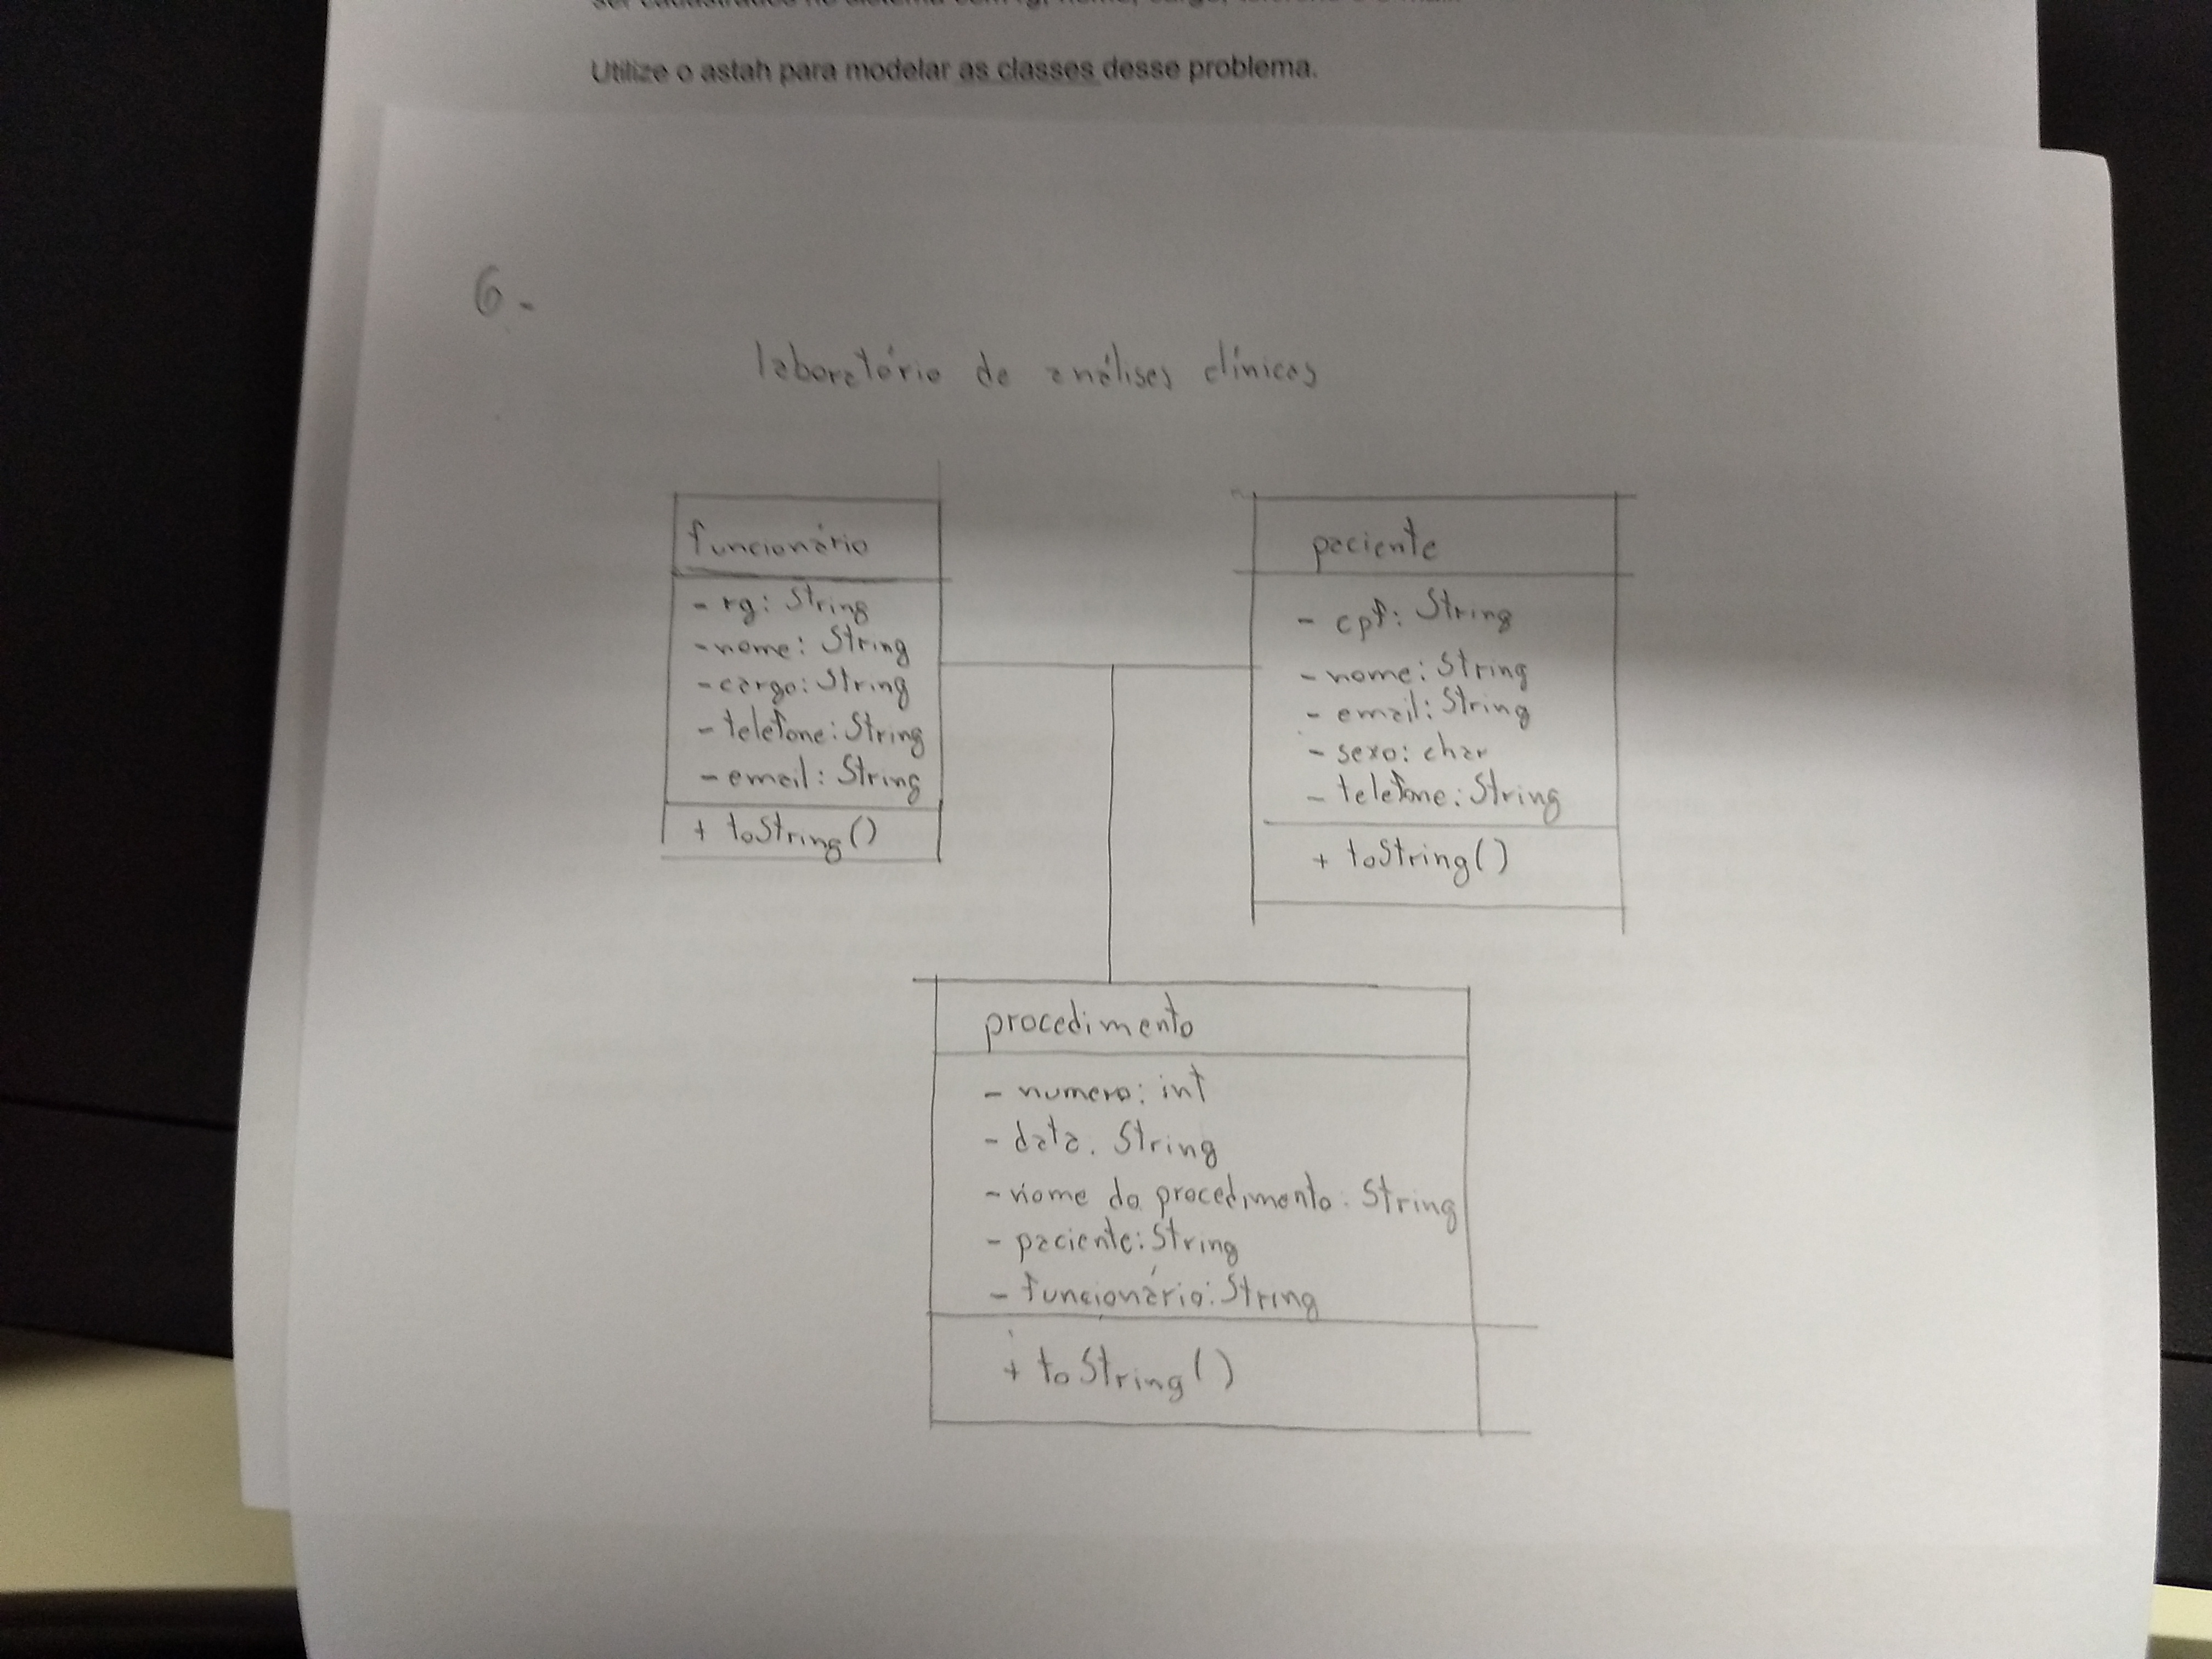 Utilize o astah para modelar as classes desse problema.
6-
laboratório de análises clínicas
funcionário
- rg: String
- nome: String
- cargo: String
- telefone: String
- email: String
+ toString()
paciente
- cpf: String
- nome: String
- email: String
- sexo: char
- telefone: String
+ toString()
procedimento
- numero: int
- data. String
- nome do procedimento: String
- paciente: String
- funcionário: String
+ toString()